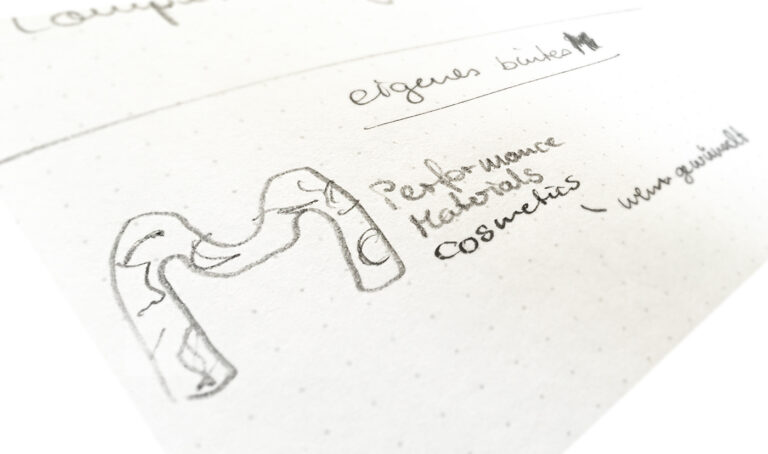 eigenes buntes M
Performance
Materials
Cosmetics
wenn gewünscht